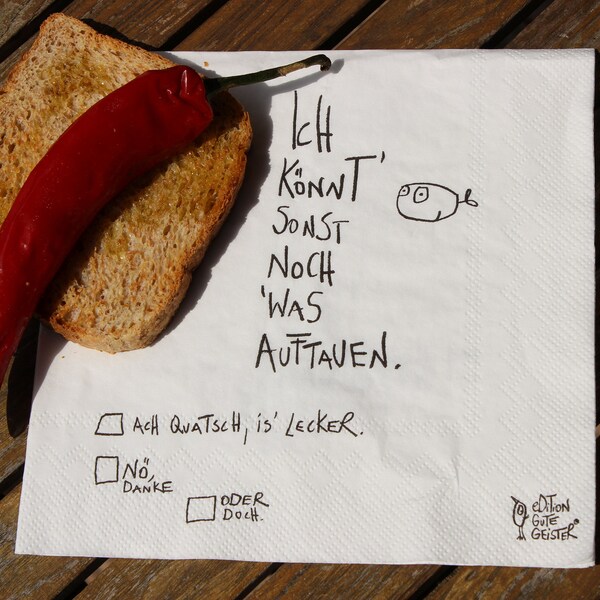 ICH
KÖNNT'
SONST
NOCH
'WAS
AUFTAUEN.
ACH QUATSCH, IS' LECKER.
NÖ,
DANKE
ODER
DOCH.
EDITION
GUTE
GEISTER®